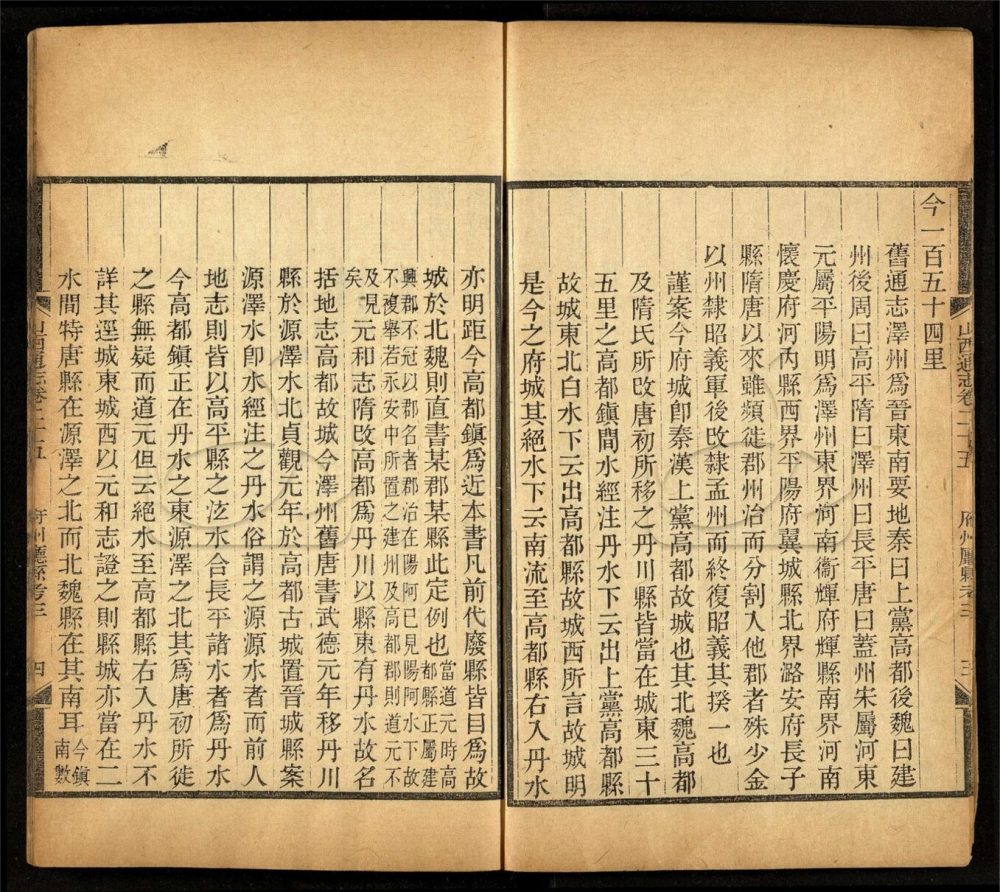 今一百五十四里
舊通志澤州爲晉東南要地秦曰上黨高都後魏曰建
州後周曰高平隋曰澤州曰長平唐曰蓋州宋屬河東
元屬平陽明爲澤州東界河南衞輝府輝縣南界河南
懷慶府河內縣西界平陽府翼城縣北界潞安府長子
縣隋唐以來雖頻徙郡州治而分割入他郡者殊少金
以州隸昭義軍後改隸孟州而終復昭義其揆一也
謹案今府城卽秦漢上黨高都故城也其北魏高都
及隋氏所改唐初所移之丹川縣皆當在城東三十
五里之高都鎮間水經注丹水下云出上黨高都縣
故城東北白水下云出高都縣故城西所言故城明
是今之府城其絕水下云南流至高都縣右入丹水
山西通志卷二十五 府州廳縣考三 三
亦明距今高都鎮爲近本書凡前代廢縣皆目爲故
城於北魏則直書某郡某縣此定例也當道元時高都縣正屬建
興郡不冠以郡名者郡治在陽阿已見陽阿水下故不複舉若永安中所置之建州及高都郡則道元不
及見矣元和志隋改高都爲丹川以縣東有丹水故名
括地志高都故城今澤州舊唐書武德元年移丹川
縣於源澤水北貞觀元年於高都古城置晉城縣案
源澤水卽水經注之丹水俗謂之源源水者而前人
地志則皆以高平縣之泫水合長平諸水者爲丹水
今高都鎮正在丹水之東源澤之北其爲唐初所徙
之縣無疑而道元但云絕水至高都縣右入丹水不
詳其逕城東城西以元和志證之則縣城亦當在二
水間特唐縣在源澤之北而北魏縣在其南耳今鎮南數
山西通志卷二十五 府州廳縣考三 四